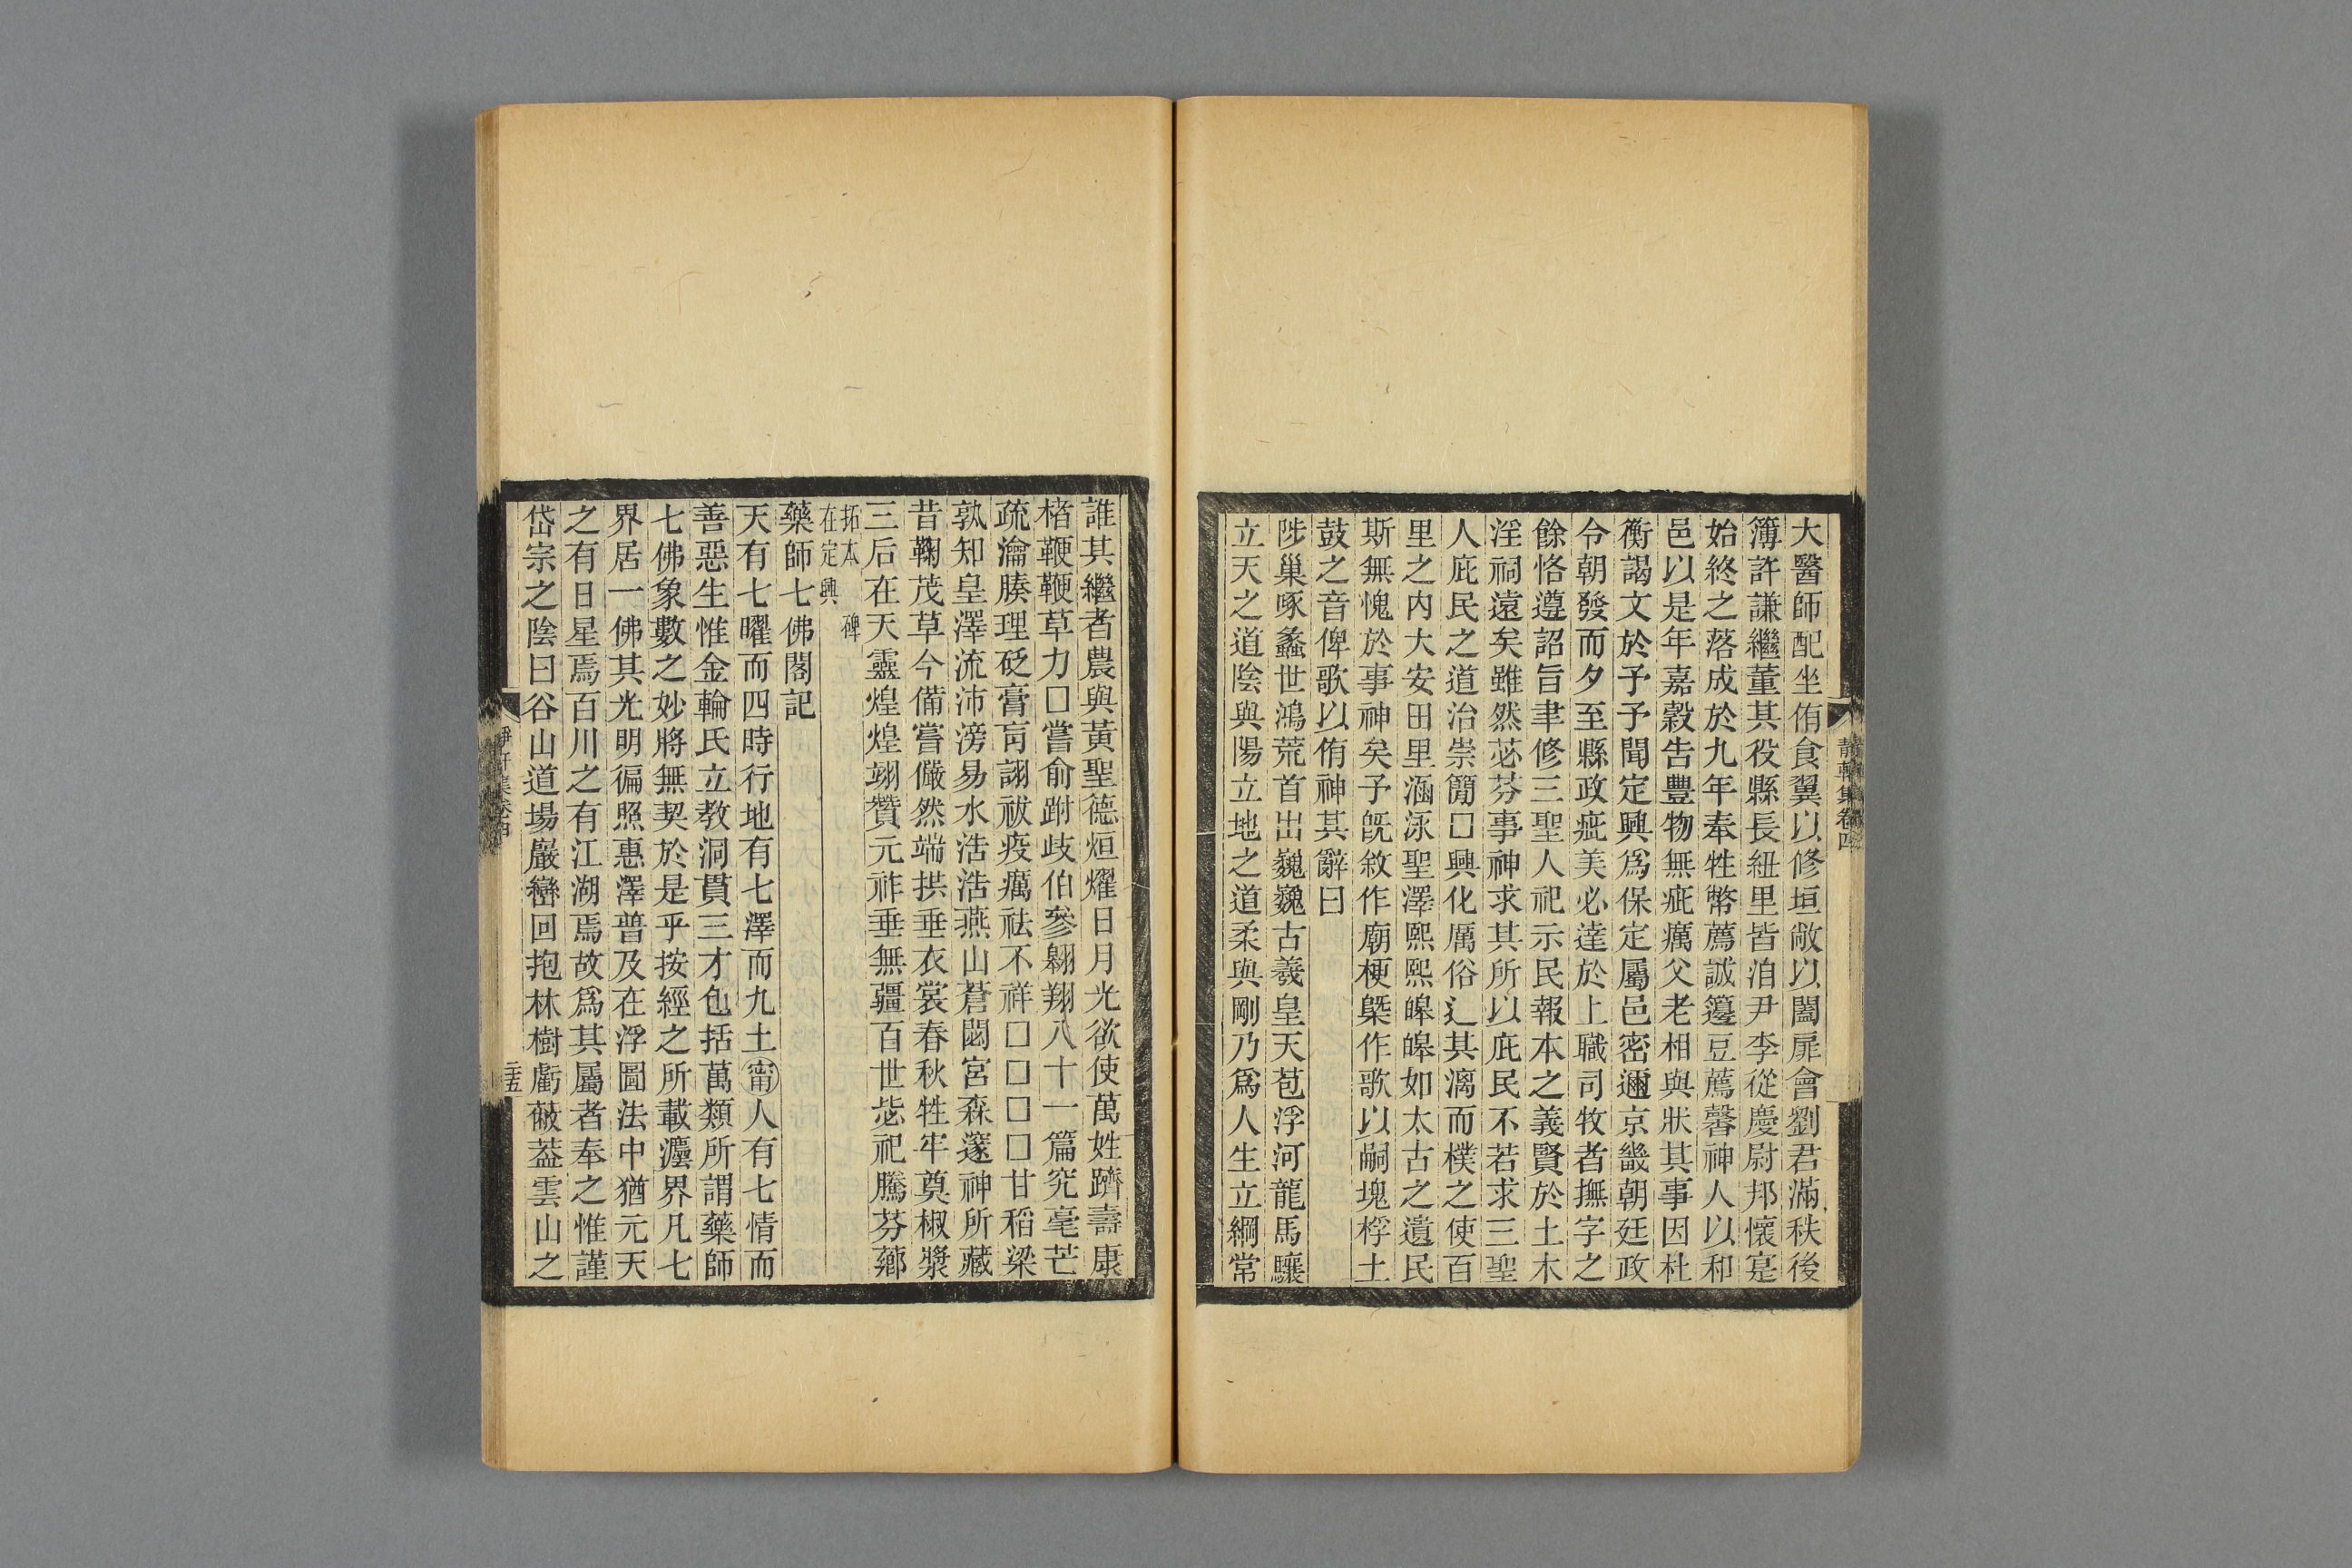 大醫師配坐侑食翼以修垣敞以闔扉會劉君滿秩後
簿許謙繼董其役縣長紐里皆洎尹李從慶尉邦懷寔
始終之落成於九年奉牲幣薦誠籩豆薦馨神人以和
邑以是年嘉穀告豐物無疵癘父老相與狀其事因杜
衡謁文於予予聞定興爲保定屬邑密邇京畿朝廷政
令朝發而夕至縣政疵美必達於上職司牧者撫字之
餘恪遵詔旨聿修三聖人祀示民報本之義賢於土木
淫祠遠矣雖然苾芬事神求其所以庇民不若求三聖
人庇民之道治崇簡□興化厲俗辶其漓而樸之使百
里之内大安田里涵泳聖澤熙熙皞皞如太古之遺民
斯無愧於事神矣予旣敘作廟梗槩作歌以嗣塊桴土
鼓之音俾歌以侑神其辭曰
陟巢啄蠡世鴻荒首出巍巍古羲皇天苞浮河龍馬驤
立天之道陰與陽立地之道柔與剛乃爲人生立綱常
靜軒集卷四
誰其繼者農與黃聖德烜燿日月光欲使萬姓躋壽康
楮鞭鞭草力□嘗俞跗歧伯參翱翔八十一篇究毫芒
疏瀹腠理砭膏肓詡祓疫癘祛不祥□□□□甘稻粱
孰知皇澤流沛滂易水浩浩燕山蒼閟宮森邃神所藏
昔鞠茂草今備嘗儼然端拱垂衣裳春秋牲牢奠椒漿
三后在天靈煌煌翊贊元祚垂無疆百世毖祀騰芬薌
拓本 碑
在定興
藥師七佛閣記
天有七曜而四時行地有七澤而九土甯人有七情而
善惡生惟金輪氏立敎洞貫三才包括萬類所謂藥師
七佛象數之妙將無契於是乎按經之所載灋界凡七
界居一佛其光明徧照惠澤普及在浮圖法中猶元天
之有日星焉百川之有江湖焉故爲其屬者奉之惟謹
岱宗之陰曰谷山道場嚴巒回抱林樹虧蔽葢雲山之
三五